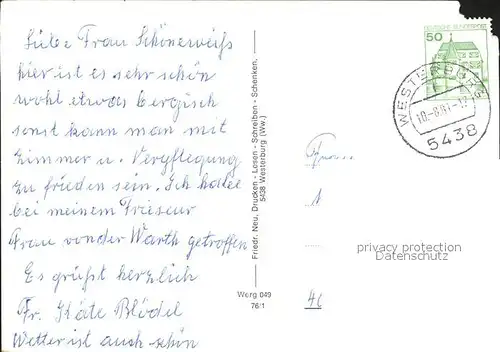 Liebe Frau Schönerweifs
hier ist es sehr schön
wohl etwas bergisch
sonst kann man mit
Zimmer u. Verpflegung
zu frieden sein. Ich habe
bei meinem Friseur
Frau von der Warth getroffen
Es grüßt herzlich
Fr. Käte Blödel
Wetter ist auch schön
Friedr. Neu, Drucken - Lesen - Schreiben - Schenken,
5438 Westerburg (Ww.)
Werg 049
76/1
50
DEUTSCHE BUNDESPOST
WESTERBURG
5438
privacy protection
Datenschutz